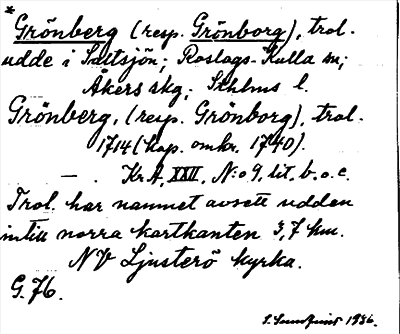 * Grönberg (resp. Grönborg), trol.
udde i Saltsjön; Roslags-Kulla sn;
Åkers skg; Sthlms l.
Grönberg, (resp. Grönborg), trol.
1714 (kop. omkr. 1740).
— . Kr A, XXII, N:o 9, lit. b. o. c.
Trol. har namnet avsett udden
intill norra kartkanten 3,7 km.
NV Ljusterö kyrka.
G. 76.
1936.